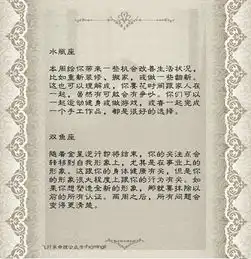 水瓶座
本周给你带来一些机会改善生活状况，
比如重新装修，搬家，或做一些翻新。
这也可以理解成，你要花时间跟家人在
一起，虽然有可能会有争吵。你们可以
一起运动健身或做游戏，或者一起完成
一个手工作品，都是很好的选择。
双鱼座
随着金星逆行即将结束，你的关注点会
转移到自我形象上，尤其是在事业上的
形象。这跟你的身体健康有关，但是你
的形象很大程度上跟你的行为有关。如
果你想塑造全新的形象，那就要抹除以
前的所有认证。两周之后，所有问题会
变得更清楚。